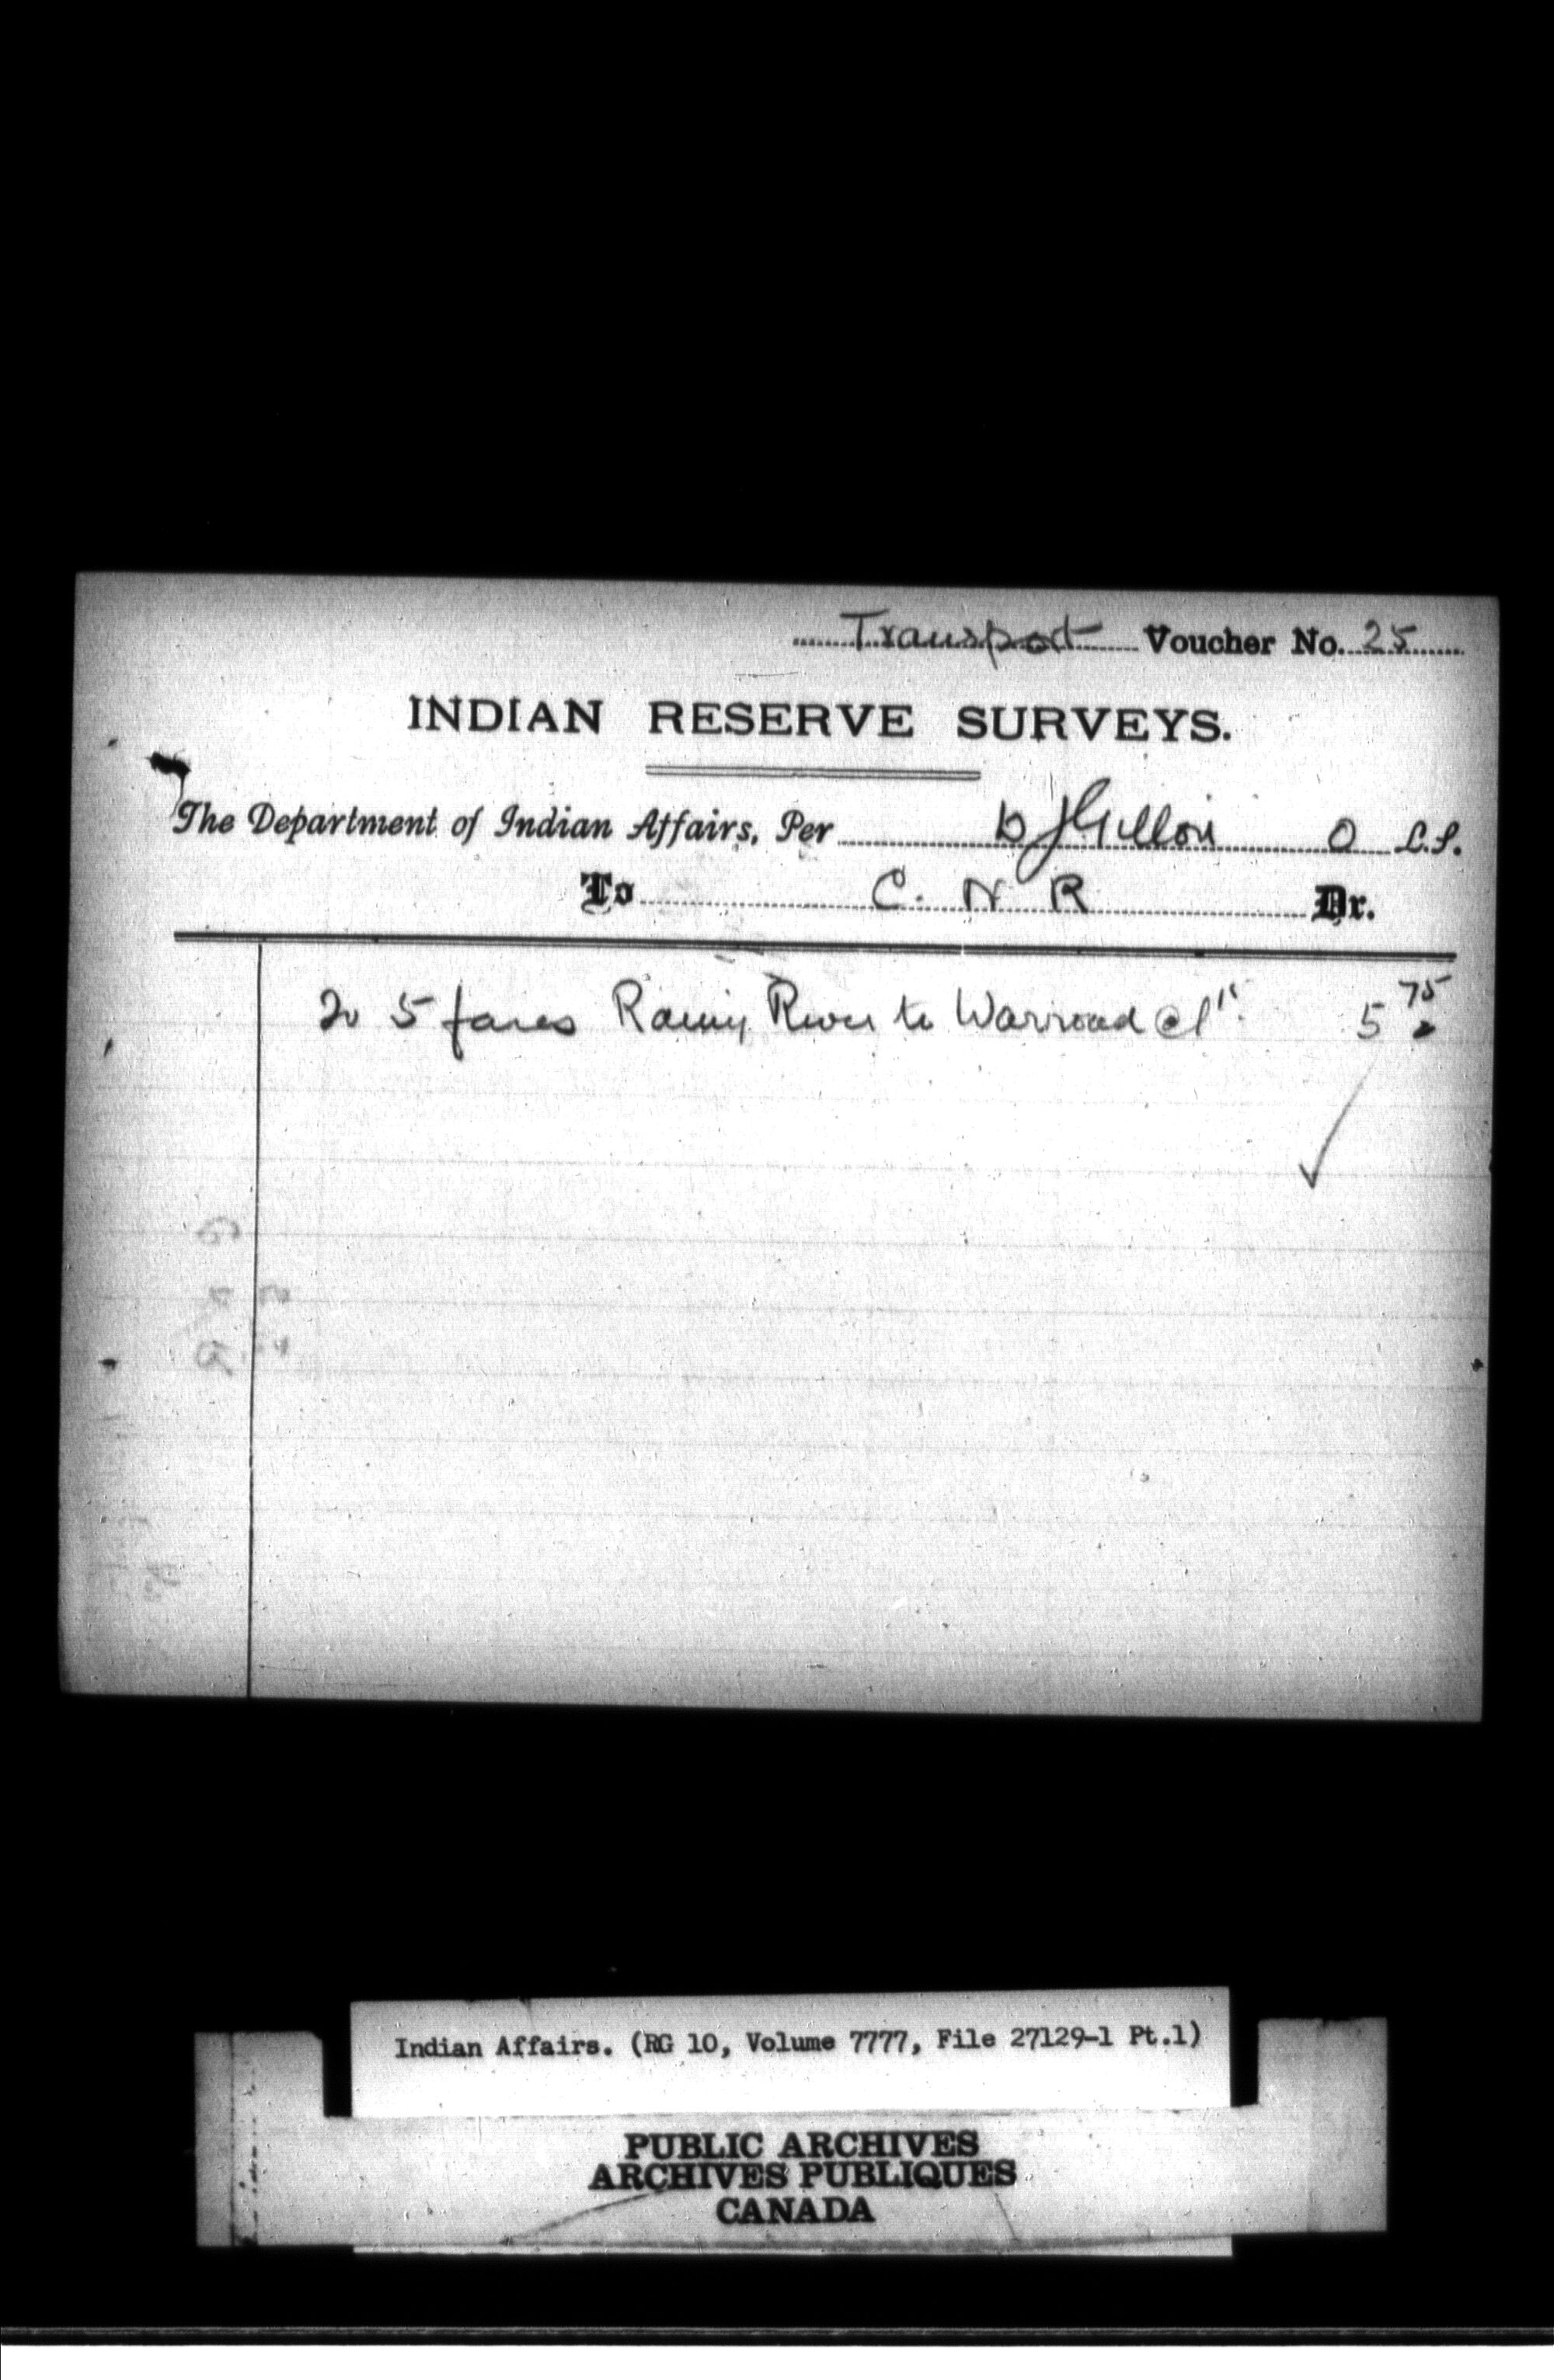 Transport Voucher No. 25
INDIAN RESERVE SURVEYS.
The Department of Indian Affairs, Per D J Gillon O L.S.
To C. N R Dr.
To 5 fares Rainy River to Warroad @ 1 15 5 75
Indian Affairs. (RG 10, Volume 7777, File 27129-1 Pt.1)
PUBLIC ARCHIVES
ARCHIVES PUBLIQUES
CANADA